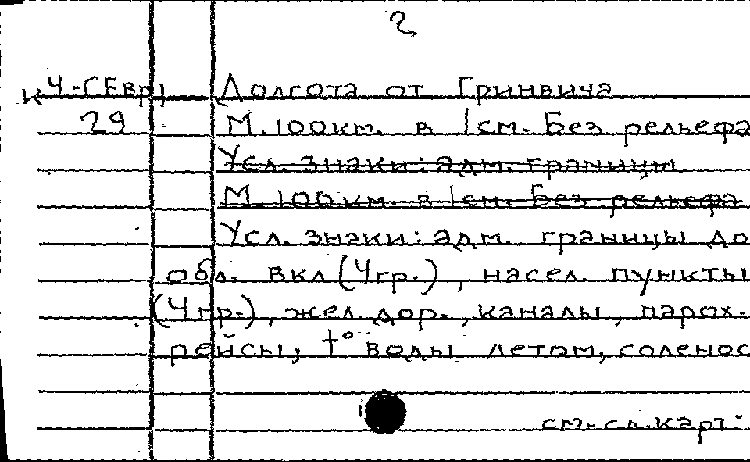 2
К Ч-ГЕвр, Долгота от Гринвича
29 М.100км. в 1см. Без рельефа
Усл. знаки: адм. границы
М 100км. в 1см. Без рельефа
Усл. знаки: адм. границы до
обл. вкл (4гр.), насел. пункты
(4 гр.), жел. дор., каналы, парох.
рейсы, t° воды летом, соленос
см. сл. карт.